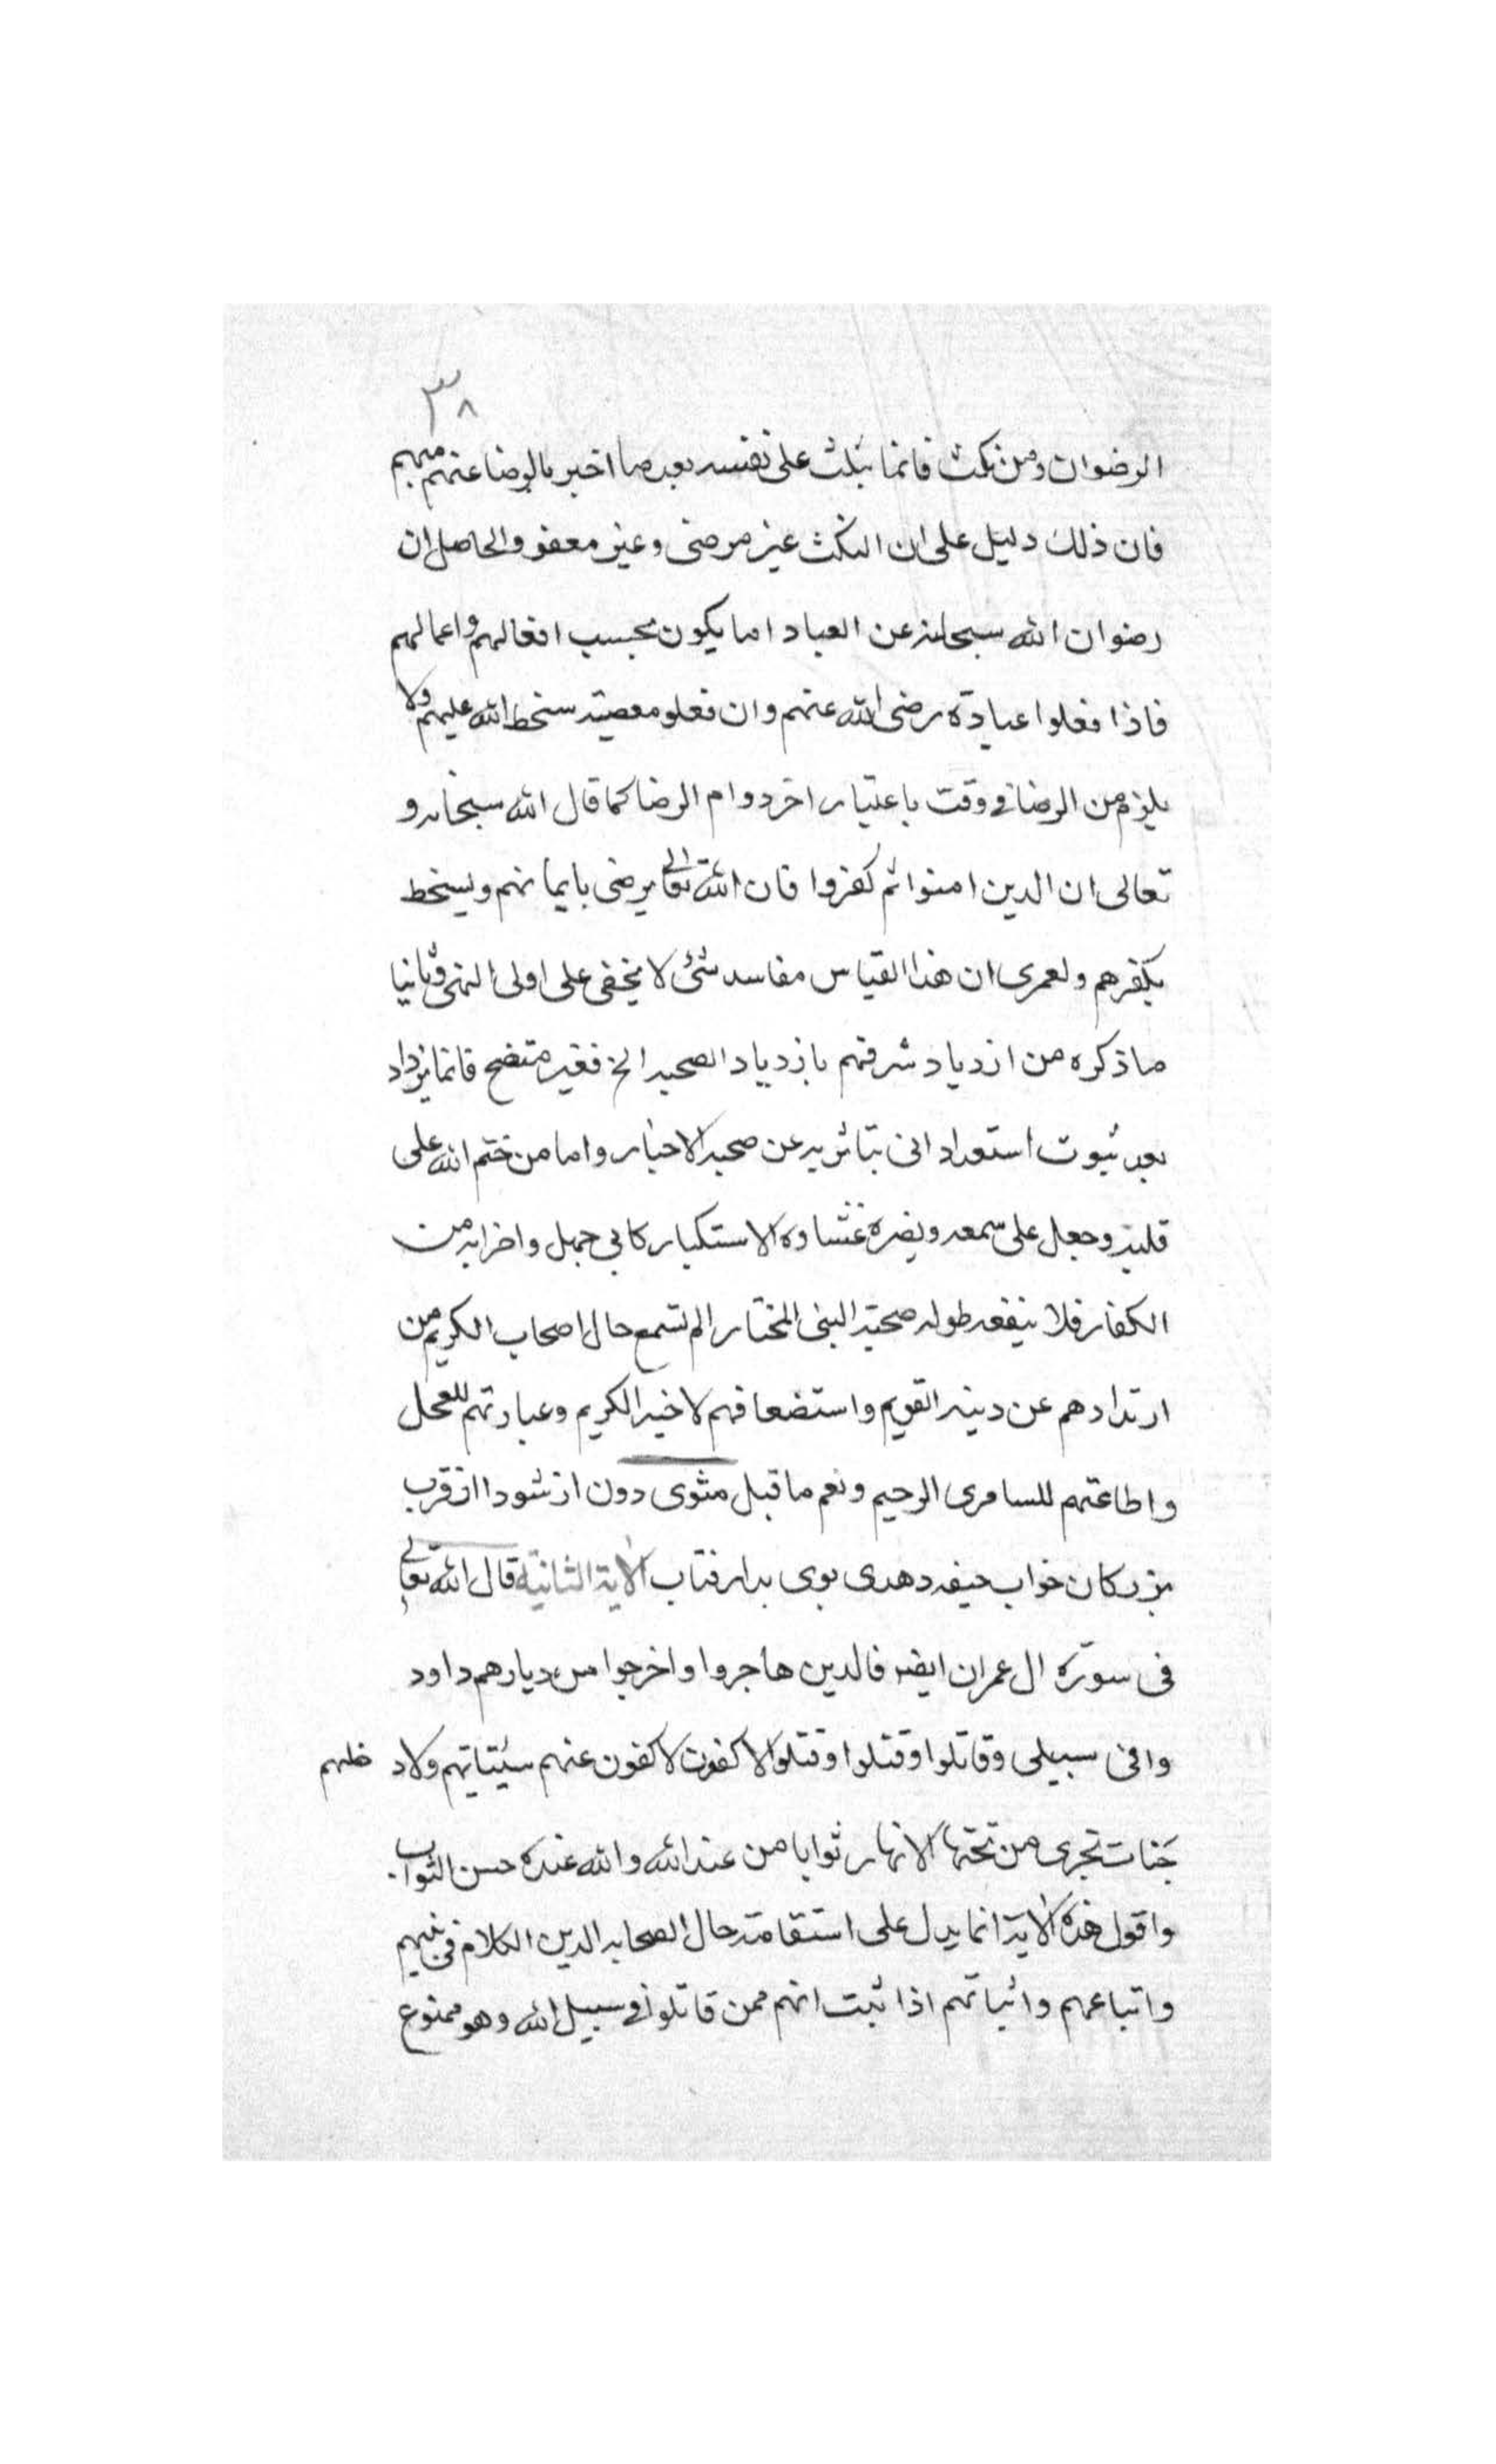 ٣٨
الرضوان ومن نكث فانما ينكث على نفسه بعد ما اخبر بالرضا عنهم منهم
فان ذلك دليل على ان النكث غير مرضى وغير معفو والحاصل ان
رضوان الله سبحانه عن العباد اما يكون بحسب افعالهم واعمالهم
فاذا فعلوا عبادة رضى الله عنهم وان فعلو معصية سخط الله عليهم ولا
يلزم من الرضا فى وقت باعتبار اخر دوام الرضا كما قال الله سبحانه و
تعالى ان الدين امنوا ثم كفروا فان الله تعالى يرضى بايمانهم ويسخط
بكفرهم ولعمرى ان هذا القياس مفاسد شئ لا يخفى على اولى النهى وثانيا
ماذكره من ازدياد شرفهم بازدياد الصحبه الخ فغير متضح فانما يزداد
بعد ثبوت استعداد انى بتاثريه عن صحبه الاخيار واما من ختم الله على
قلبه وجعل على سمعه وبصره غشاوه الاستكبار كابى جهل واضرابه من
الكفار فلا ينفعه طوله صحبته النبى المختار الم تسمع حال اصحاب الكريم من
ارتدادهم عن دينه القويم واستضعافهم لاخيه الكريم وعبادتهم للعجل
واطاعتهم للسامرى الرجيم ونعم ما قيل مثنوى دون از شود ااز قرب
بزركان خواب جيفه دهدى بوى بد ار فتاب الاية الثانية قال الله تعالى
فى سورة ال عمران ايضا فالدين هاجروا واخرجوا من ديارهم داود
وافى سبيلى وقاتلوا وقتلوا وقتلوا لاكفون لاكفون عنهم سيئتاتهم ولاد خلهم
جنات تجرى من تحتها الانهار ثوابا من عند الله والله عنده حسن الثواب.
واقول هذه الاية انما يدل على استقامته حال الصحابه الدين الكلام فى فيهم
واتباعهم واثباتهم اذا ثبت انهم ممن قاتلو فى سبيل الله وهو ممنوع